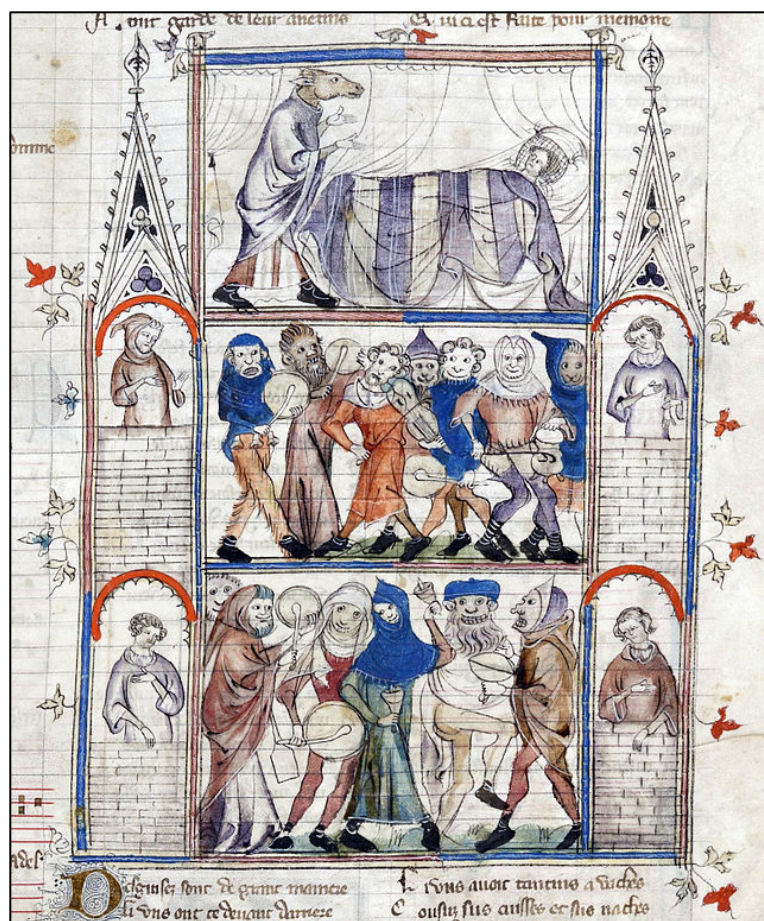 ont garde de leur anemis
Q ui ci est faite pour memoire
Desguisez sont de grant maniere
Li uns ont ce deuant darriere
L i uns auoit tantins a vaches
C ousuz sus cuisses et sus naches